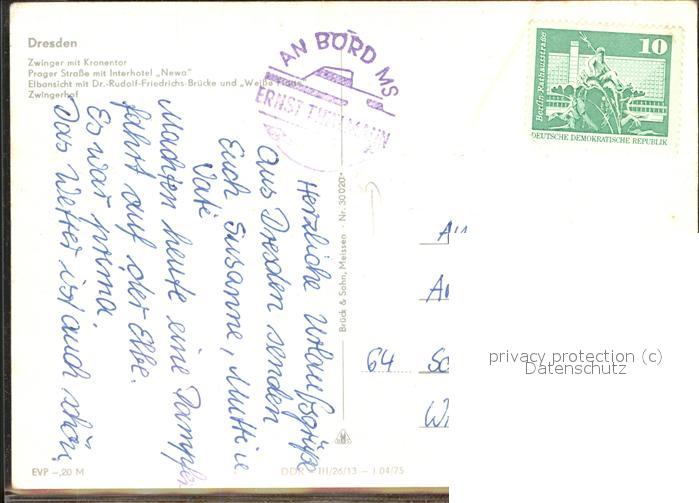 Dresden
Zwinger mit Kronentor
Prager Straße mit Interhotel „Newa"
Elbansicht mit Dr.-Rudolf-Friedrichs-Brücke und „Weiße
Zwingerhof
AN BORD MS
ERNST THÄLMANN
10
Berlin Rathausstraße
DEUTSCHE DEMOKRATISCHE REPUBLIK
Herzliche Urlaubsgrüße
aus Dresden senden
Euch Susanne, Mutti u.
Vati
Machten heute eine Dampfer
fahrt auf der Elbe.
Es war prima.
Das Wetter ist auch schön.
Brück & Sohn, Meissen · Nr. 30020*
64
privacy protection (c)
Datenschutz
EVP –,20 M
DDR III/26/13 – J 04/75